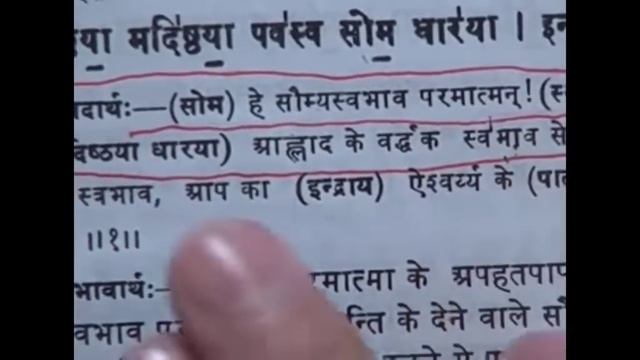 या मदि॑ष्ठया॒ पव॑स्व सोम॒ धार॑या । इन
दार्थः—(सोम) हे सौम्यस्वभाव परमात्मन् ! (स
दिष्ठया धारया) आह्लाद के वर्द्धक स्वभाव से
स्त्रभाव, आप का (इन्द्राय) ऐश्वर्य्य के (पात
॥१॥
भावार्थः— रमात्मा के अपहतपाप
वभाव न्ति के देने वाले सौ